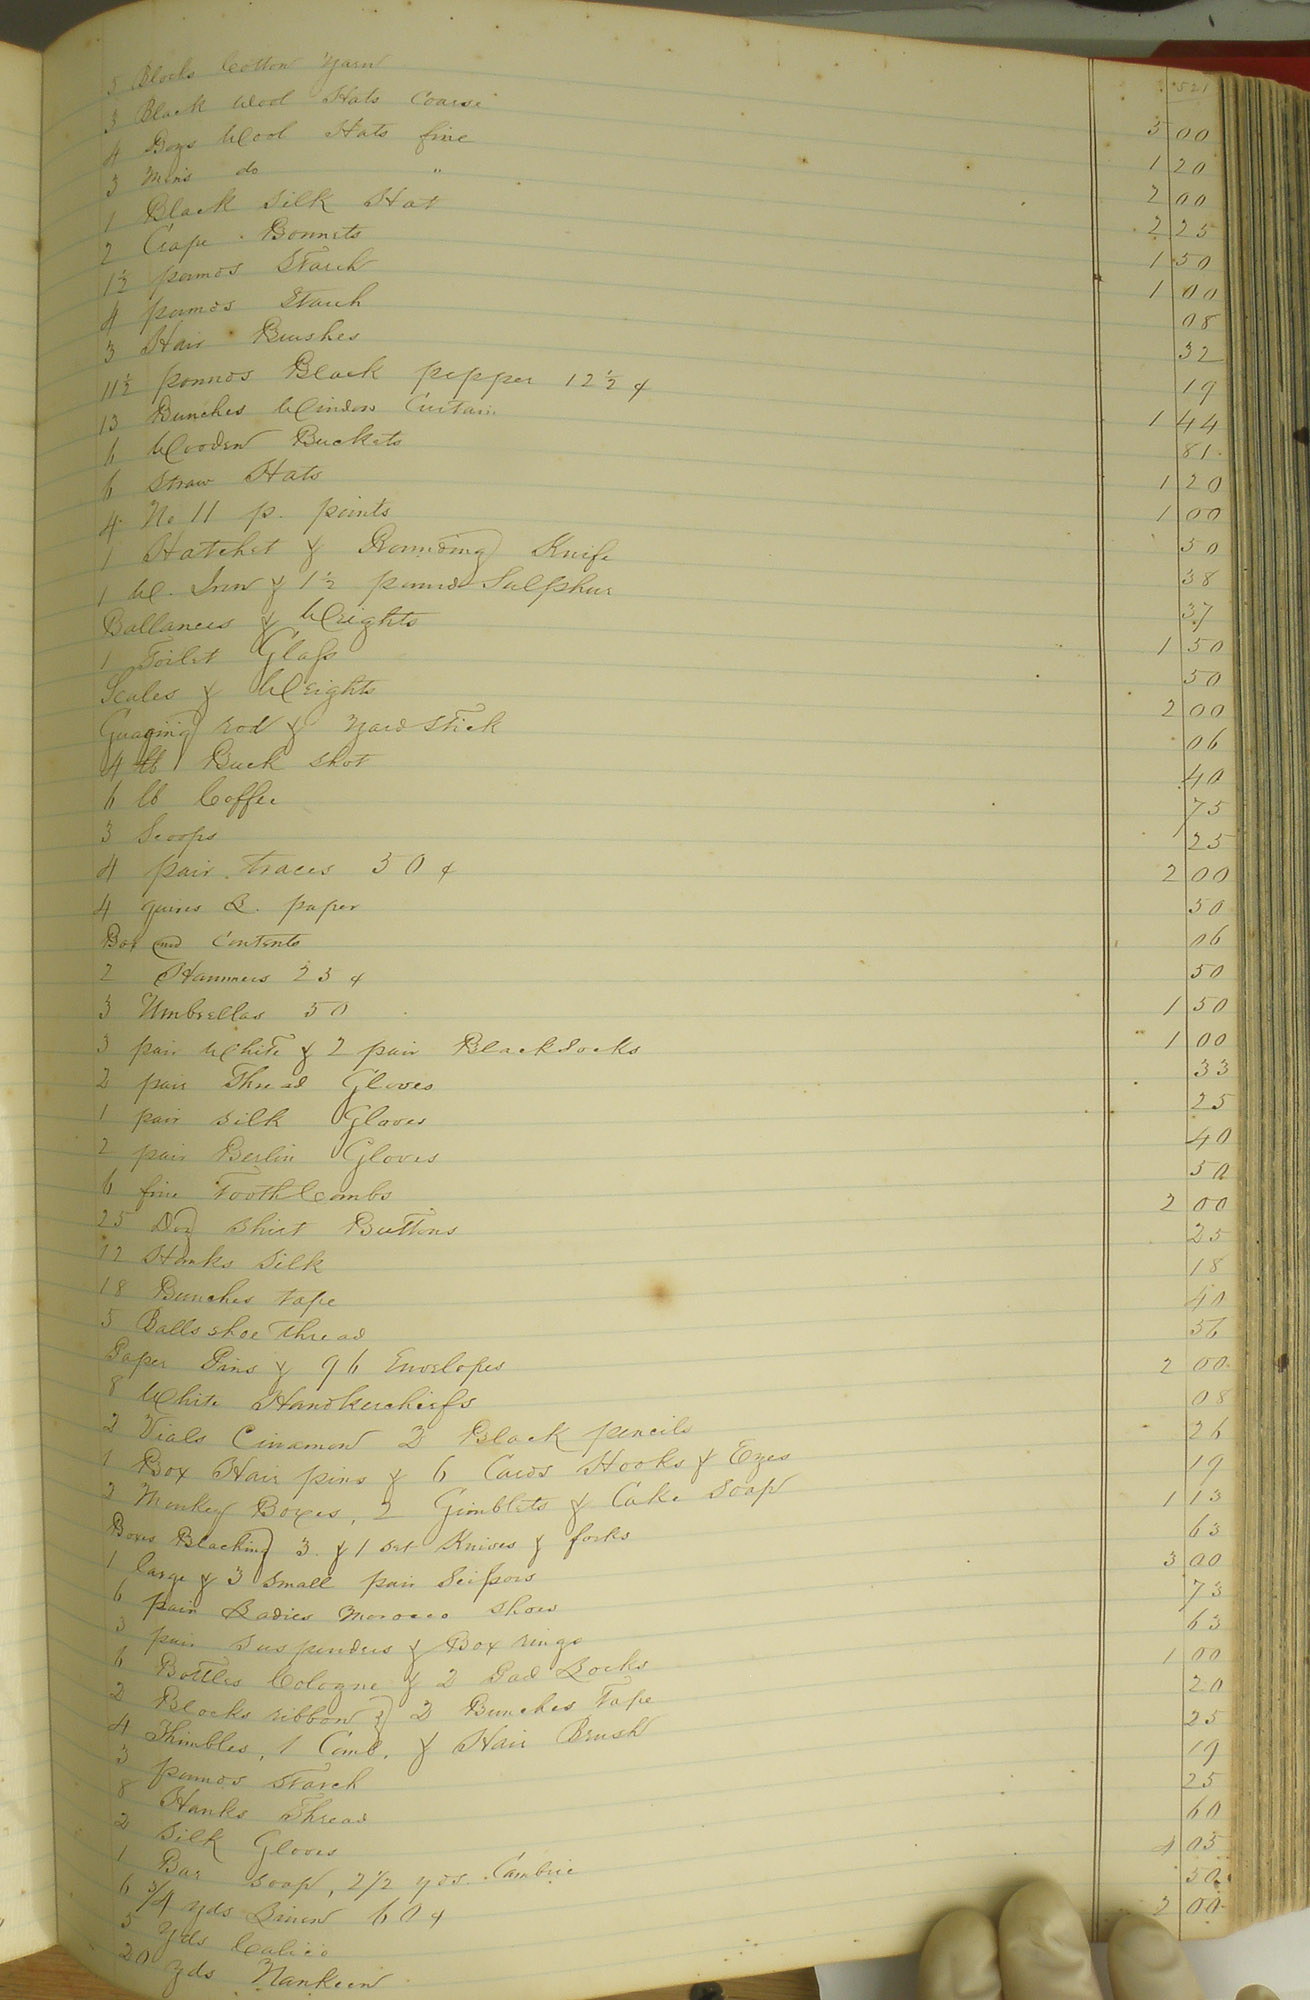 521
5 Blocks Cotton Yarn 5 00
3 Black Wool Hats Coarse 1 20
4 Boys Wool Hats fine 2 00
3 Mens do " 2 25
1 Black Silk Hat 1 50
2 Crape Bonnets 1 00
1½ pounds Starch 08
4 pounds Starch 32
3 Hair Brushes 19
11½ pounds Black pepper 12½ ¢ 1 44
13 Bunches Window Curtain 81
6 Wooden Buckets 1 20
6 Straw Hats 1 00
4 No 11 p. points 50
1 Hatchet & Rounding Knife 38
1 W. Iron & 1½ pounds Sulphur 37
Ballances & Weights 1 50
1 Toilet Glass 50
Scales & Weights 2 00
Guaging rod & Yard Stick 06
4 lb Buck shot 40
6 lb Coffee 75
3 Scoops 25
4 pair traces 50 ¢ 2 00
4 quires L. paper 50
Box and contents 06
2 Hammers 25 ¢ 50
3 Umbrellas 50 1 50
3 pair White & 2 pair Black Socks 1 00
2 pair Thread Gloves 33
1 pair silk Gloves 25
2 pair Berlin Gloves 40
6 fine Tooth Combs 50
25 Doz shirt Buttons 2 00
12 Hanks Silk 25
18 Bunches tape 18
5 Balls shoe Thread 40
Paper Pins & 96 Envelopes 56
8 White Handkerchiefs 2 00
2 Vials Cinamon 2 Black pencils 08
1 Box Hair pins & 6 Cards Hooks & Eyes 26
2 Monkey Boxes, 2 Gimblets & Cake Soap 19
Boxes Blacking 3 & 1 set Knives & forks 1 13
1 large & 3 small pair Scissors 63
6 pair Ladies Morocco Shoes 3 00
3 pair suspenders & Box rings 73
6 Bottles Cologne & 2 Pad Locks 63
2 Blocks ribbon & 2 Bunches Tape 1 00
4 Thimbles, 1 Comb, & Hair Brush 20
3 pounds Starch 25
8 Hanks Thread 19
2 Silk Gloves 25
1 Bar Soap, 2½ yds. Cambric 60
6 3/4 yds Linen 60 ¢ 4 05
5 yds Calico 50
20 yds Nankeen 2 00